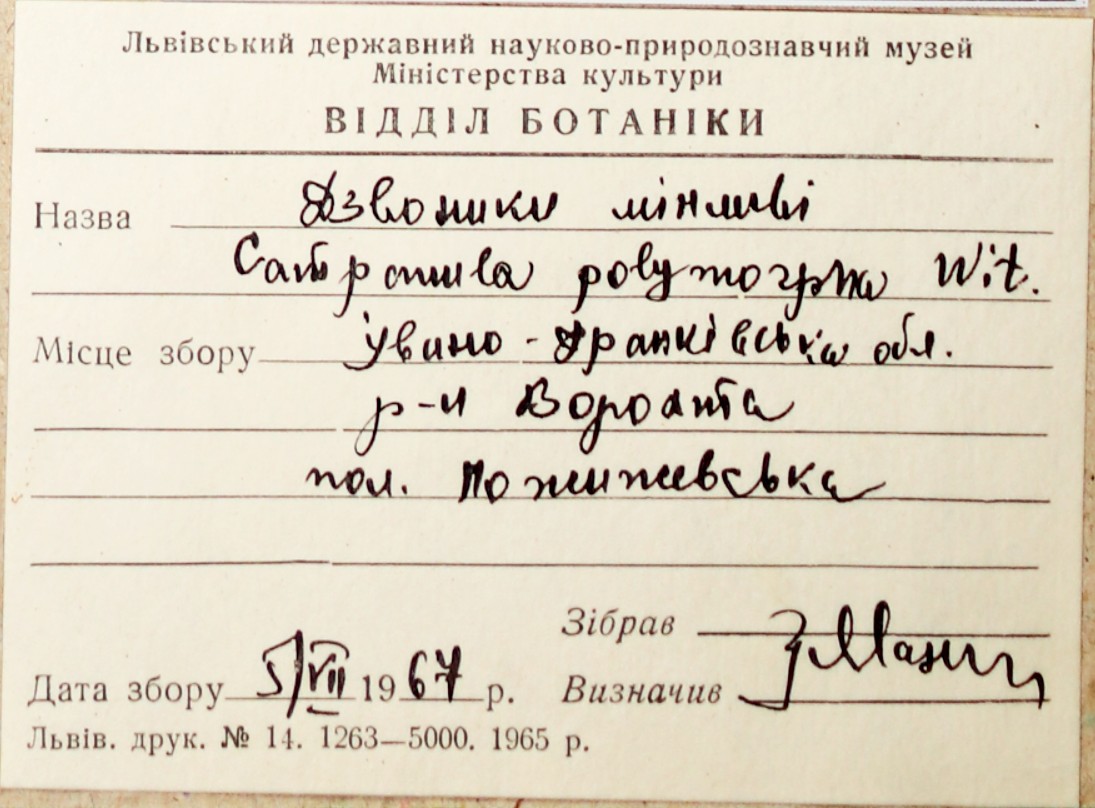 Львівський державний науково-природознавчий музей
Міністерства культури
ВІДДІЛ БОТАНІКИ
Назва Дзвоники мінливі
Campanula polymorpha Wit.
Місце збору Івано-Франківська обл.
р-н Ворохта
пол. Пожижевська
Зібрав
Дата збору 5/VII 1967 р. Визначив
Львів. друк. № 14. 1263—5000. 1965 р.